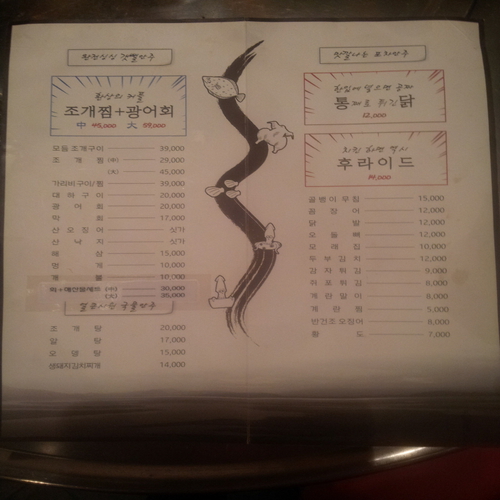 환상의 커플
조개찜+광어회
中 45,000 大 55,000
모듬조개구이 39,000
조개찜 (中) 29,000
(大) 45,000
가리비구이/찜 39,000
대하구이 20,000
광어회 20,000
막회 17,000
산오징어 싯가
산낙지 싯가
해삼 15,000
멍게 10,000
개불 10,000
(小) 30,000
(大) 35,000
조개탕 20,000
알탕 17,000
오뎅탕 15,000
생돼지김치찌개 14,000
맛깔나는 요리안주
통째로 튀긴 닭
12,000
치킨 하면 역시
후라이드
14,000
골뱅이무침 15,000
꼼장어 12,000
닭발 12,000
오돌뼈 12,000
모래집 10,000
두부김치 12,000
감자튀김 9,000
쥐포튀김 8,000
계란말이 8,000
계란찜 5,000
반건조오징어 8,000
황도 7,000